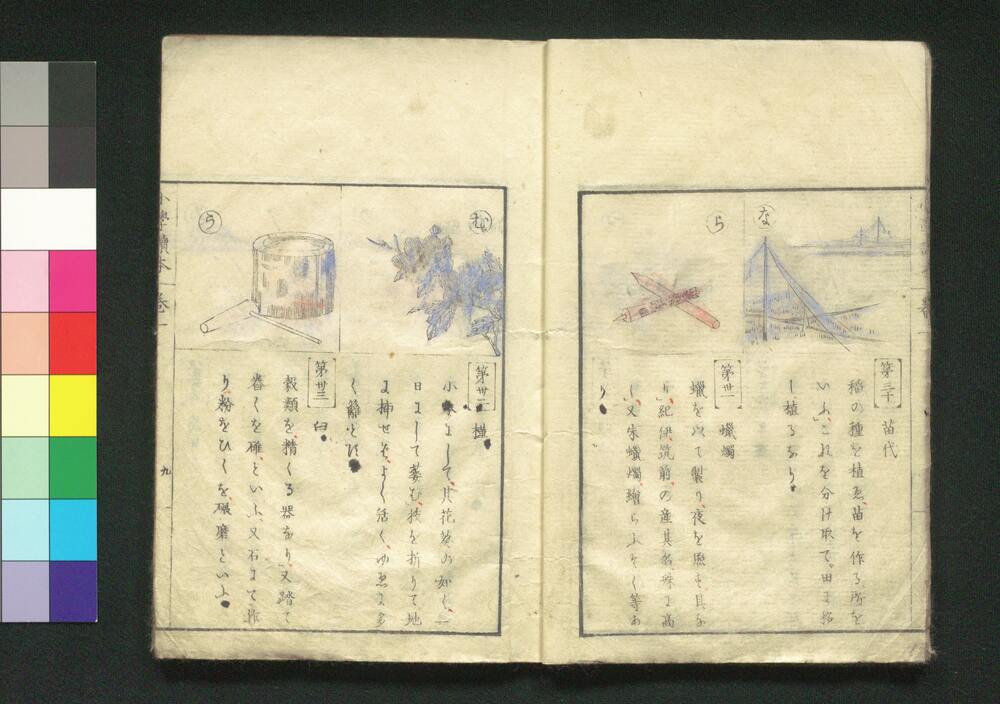 な
ら
第三十 苗代
稲の種を植ゑ、苗を作る所を
いふ、これを分け取て、田に移
し植るなり
第卅一 蠟燭
蠟を以て製り、夜を照す具な
り、紀伊筑前、の産其名殊に高
し、又朱蠟燭、繪らふそく等あ
り
む
う
第卅二 槿
小木にして、其花葵の如く、一
日にして萎む、枝を折りて地
に挿せば、よく活く、ゆゑに多
く籬とす
第卅三 臼
穀類を、精くる器なり、又踏て
舂くを碓、といふ、又石にて作
り、粉をひくを、碾磨といふ
小學讀本 巻一
九